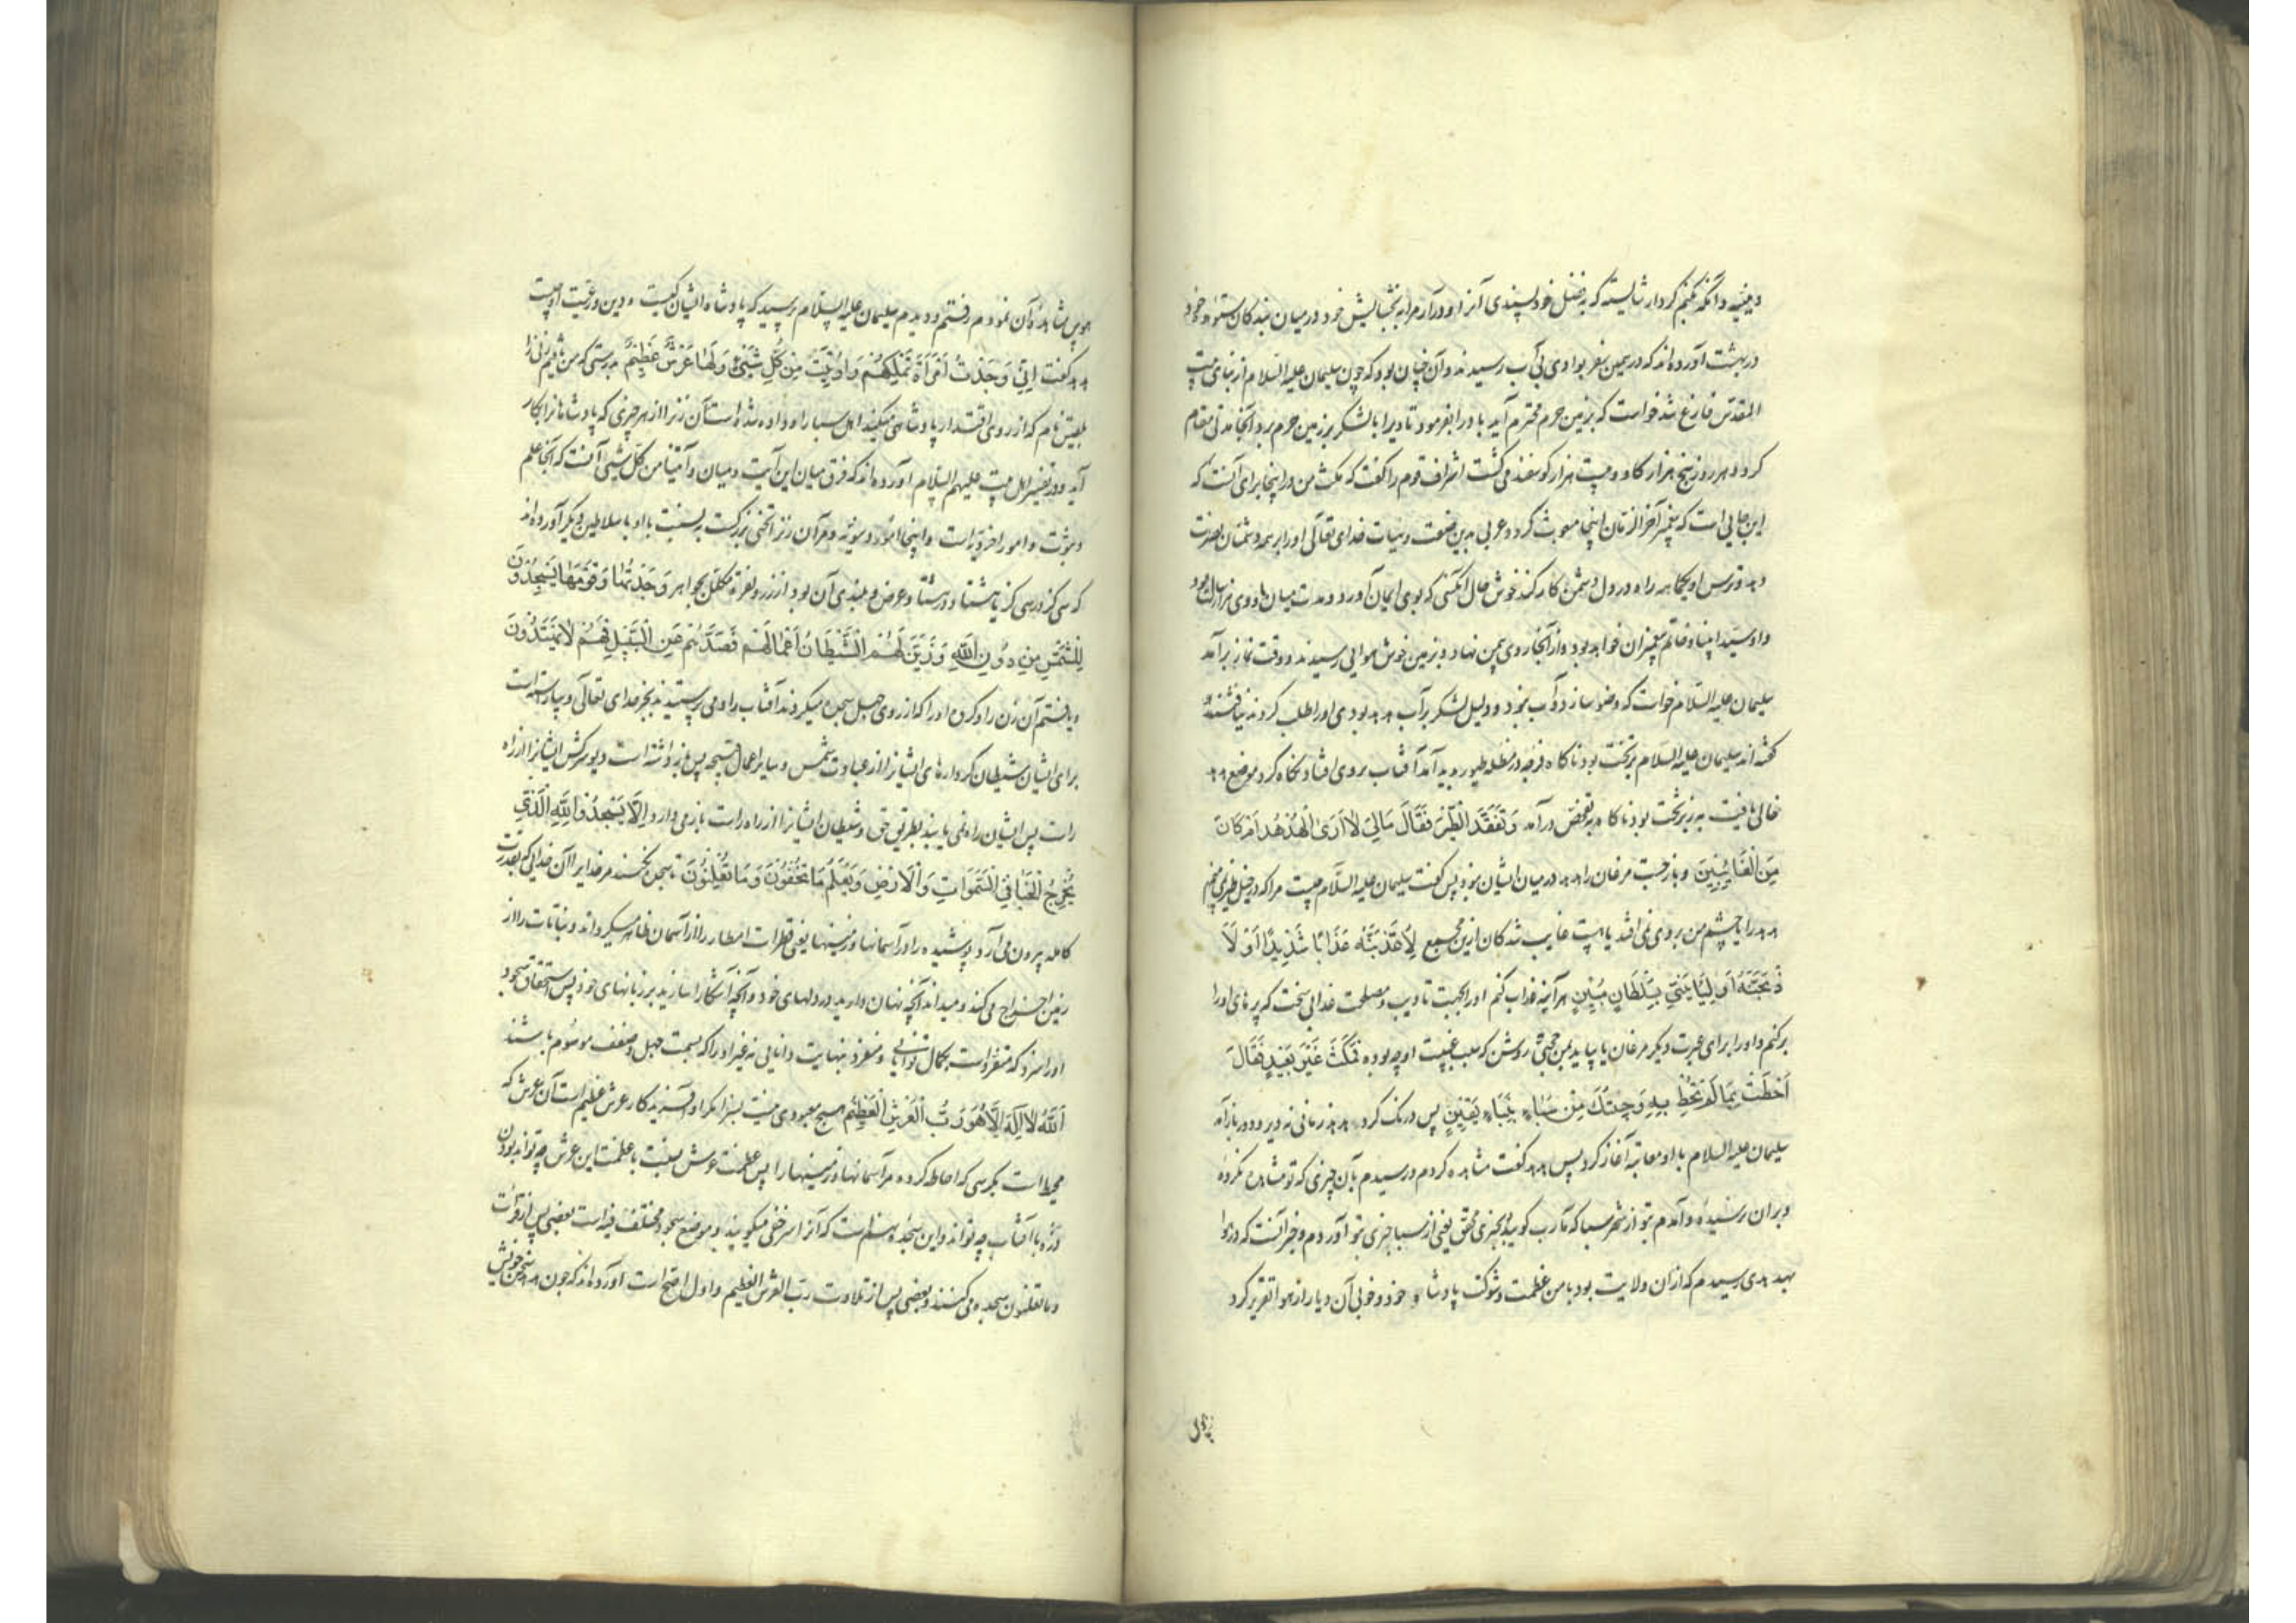 و آنکه بکنم کردار شایسته که به فضل خود پسندی آنرا و درآر مرا به بخشایش خود در میان بندکان ستوده خود
در بهشت آورده‌اند که در یمن سفر بوادی بی آب رسیدند و آن چنان بود که چون سلیمان علیه السلام از بنای بیت
المقدس فارغ شد خواست که بزمین حرم محترم آید باد را بفرمود تا ویرا با لشکر بزمین حرم برد و آنجا مدتی مقام
کرد و هر روز پنج هزار کاو و بیست هزار کوسفند می کشت اشراف قوم را کفت که مکث من در اینجا برای آنست که
این جایی است که پیغمبر آخر الزمان اینجا مبعوث کردد عربی بدین صفت و خدای تعالی او را بر همه دشمنان نصرت
دهد و ترس او یکماهه راه در دل دشمن کار کند خوش حال آنکسی که بوی ایمان آورد و مدت میان ما و وی هزار سال بود
و او سید انبیا و خاتم پیغمبران خواهد بود و از آنجا روی بیمن نهاد و بزمین خوش هوایی رسیدند و وقت نماز برآمد
سلیمان علیه السلام خواست که وضو سازد و آب نبود و دلیل لشکر بر آب هدهد بودی او را طلب کردند نیافتند و
کفته اند سلیمان علیه السلام بر تخت بود ناکاه فرجه در مظله طیور پدید آمد آفتاب بر وی افتاد نکاه کرد موضع هدهد
خالی یافت به زیر تخت بود ناکاه به تفحص درآمد وَتَفَقَّدَ الطَّيْرَ فَقَالَ مَالِيَ لَا أَرَى الْهُدْهُدَ أَمْ كَانَ
مِنَ الْغَائِبِينَ و باز جست مرغان را هدهد در میان ایشان نبود پس کفت سلیمان علیه السلام چیست مرا که در خیل طیر نمی بینم
هدهد را یا چشم من بر وی نمی افتد یا هست غایب شدکان ازین مجمع لَأُعَذِّبَنَّهُ عَذَابًا شَدِيدًا أَوْ لَأَ
ذْبَحَنَّهُ أَوْ لَيَأْتِيَنِّي بِسُلْطَانٍ مُبِينٍ هر آینه عذاب کنم او را بجهت تادیب و مصلحت عذابی سخت که پر های او را
برکنم و او را برای عبرت دیکر مرغان یا بیاید بمن حجتی روشن که سبب غیبت او چه بوده فَمَكَثَ غَيْرَ بَعِيدٍ فَقَالَ
أَحَطْتُ بِمَا لَمْ تُحِطْ بِهِ وَجِئْتُكَ مِنْ سَبَإٍ بِنَبَإٍ يَقِينٍ پس درنک کرد هدهد زمانی نه دیر و زود باز آمد
سلیمان علیه السلام با او معاتبه آغاز کرد پس هدهد کفت مشاهده کردم و رسیدم بآن چیزی که تو مشاهده نکرده
و بدان نرسیدهٔ و آمدم بتو از شهر سبا که مآرب کویند بخبری محقق یعنی از سبا خبری بتو آوردم و خبر آنست که در هوا
بهدهدی رسیدم که از آن ولایت بود با من عظمت و شوکت پادشاه خود و خوبی آن دیار از هوا تقریر کرد
هوس مشاهدهٔ آن نمودم رفتم و دیدم سلیمان علیه السلام پرسید که پادشاه ایشان کیست و دین و رعیت او چیست
هدهد کفت إِنِّي وَجَدْتُ امْرَأَةً تَمْلِكُهُمْ وَأُوتِيَتْ مِنْ كُلِّ شَيْءٍ وَلَهَا عَرْشٌ عَظِيمٌ بدرستی که من یافتم زنی را
بلقیس نام که از روی اقتدار پادشاهی میکند اهل سبا را و داده شده است آن زنرا از هر چیزی که پادشاهانرا بکار
آید و در تفسیر اهل بیت علیهم السلام آورده‌اند که فرق میان این آیت و میان و آتینا من کل شیء آنست که آنجا علم
و نبوت و امور اخرویه است و اینجا امور دنیویه و مر آن زنرا تختی بزرکست به نسبت با او با سلاطین دیکر آورده‌اند
که سی کز در سی کز یا هشتاد در هشتاد عرض و بلندی آن بود از زر و نقره مکلل بجواهر وَجَدْتُهَا وَقَوْمَهَا يَسْجُدُونَ
لِلشَّمْسِ مِنْ دُونِ اللَّهِ وَزَيَّنَ لَهُمُ الشَّيْطَانُ أَعْمَالَهُمْ فَصَدَّهُمْ عَنِ السَّبِيلِ فَهُمْ لَا يَهْتَدُونَ
و یافتم آن زن را و کروه او را که از روی جهل سجده میکردند آفتاب را و می پرستیدند بجز خدای تعالی و بیاراسته است
برای ایشان شیطان کردارهای ایشانرا از عبادت شمس و سایر اعمال قبیحه پس باز داشته است دیو سرکش ایشانرا از راه
راست پس ایشان راه نمی یابند بطریق حق و شیطان ایشانرا از راه راست باز می دارد أَلَّا يَسْجُدُوا لِلَّهِ الَّذِي
يُخْرِجُ الْخَبْأَ فِي السَّمٰوَاتِ وَالْأَرْضِ وَيَعْلَمُ مَا تُخْفُونَ وَمَا تُعْلِنُونَ تا سجده نکنند مر خدایرا آن خدایی که بقدرت
کامله بیرون می آرد پوشیده را در آسمانها و زمینها یعنی قطرات امطار را از آسمان ظاهر میکرداند و نباتات را از
زمین اخراج می کند و میداند آنچه نهان دارید در دلهای خود و آنچه آشکارا سازید بر زبانهای خود پس استحقاق سجود
او را سزد که متفرد است بکمال توانایی و متفرد بنهایت دانایی نه غیر او را که بسمت جهل و ضعف موسوم باشند
اَللَّهُ لَا إِلٰهَ إِلَّا هُوَ رَبُّ الْعَرْشِ الْعَظِيمِ هیچ معبودی نیست بسزا مکر او آفریدکار عرش عظیم است آن عرش که
محیط است بکرسی که احاطه کرده مر آسمانها و زمینها را پس عظمت عرش بلقیس با عظمت این عرش چه تواند بودن
ذره با آفتاب چه تواند و این سجده هشتم است که آنرا سر خفی میکویند و موضع سجود مختلف فیه است بعضی پس از قرائت
وما تعلنون سجده می کنند و بعضی پس از تلاوت رب العرش العظیم و اول اصح است آورده‌اند که چون هدهد سخن خویش